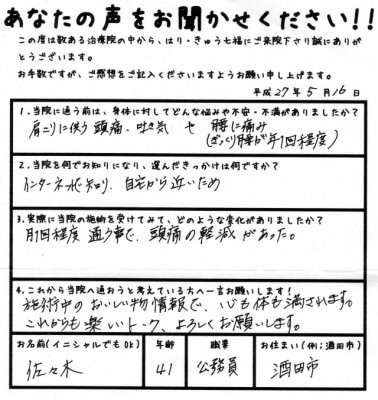 あなたの声をお聞かせください!!
この度は数ある治療院の中から、はり・きゅう七福にご来院下さり誠にありが
とうございます。
お手数ですが、ご感想をご記入くださいますようお願い申し上げます。
平成27年5月16日
1.当院に通う前は、身体に対してどんな悩みや不安・不満がありましたか?
肩こりに伴う頭痛、吐き気 や 腰に痛み
(ぎっくり腰が年1回程度)
2.当院を何でお知りになり、選んだきっかけは何ですか?
インターネットで知り、自宅から近いため
3.実際に当院の施術を受けてみて、どのような変化がありましたか?
月1回程度通う事で、頭痛の軽減があった。
4.これから当院へ通おうと考えている方へ一言お願いします!
施術中のおいしい物情報で、心も体も満されます。
これからも楽しいトーク、よろしくお願いします。
お名前(イニシャルでもOK) 年齢 職業 お住まい(例;酒田市)
佐々木 41 公務員 酒田市